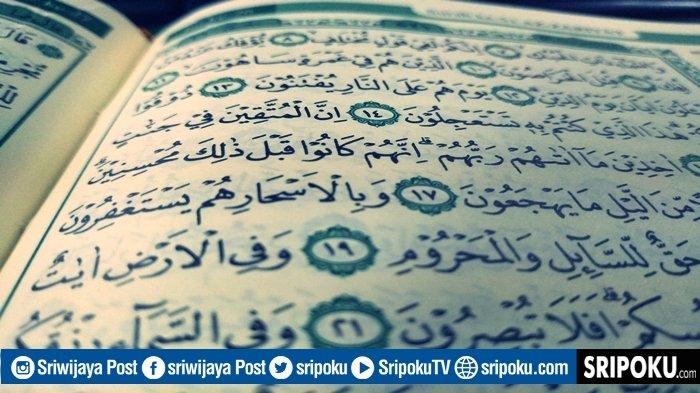 لَفِيْ قَوْلٍ مُّخْتَلِفٍ ۙ ٨ يُّؤْفَكُ
الَّذِيْنَ هُمْ فِيْ غَمْرَةٍ سَاهُوْنَ ۙ ١١
١٢ يَوْمَ هُمْ عَلَى النَّارِ يُفْتَنُوْنَ ١٣ ذُوْقُوْا
هٰذَا الَّذِيْ كُنْتُمْ بِهٖ تَسْتَعْجِلُوْنَ ١٤ اِنَّ الْمُتَّقِيْنَ فِيْ جَنّٰتٍ
اٰخِذِيْنَ مَآ اٰتٰىهُمْ رَبُّهُمْ ۗ اِنَّهُمْ كَانُوْا قَبْلَ ذٰلِكَ مُحْسِنِيْنَ ۗ
مِّنَ الَّيْلِ مَا يَهْجَعُوْنَ ١٧ وَبِالْاَسْحَارِ هُمْ يَسْتَغْفِرُوْنَ
حَقٌّ لِّلسَّاۤىِٕلِ وَالْمَحْرُوْمِ ١٩ وَفِى الْاَرْضِ اٰيٰتٌ
اَفَلَا تُبْصِرُوْنَ ٢١ وَفِى السَّمَاۤءِ رِزْقُ
قَالَ
Sriwijaya Post sriwijaya Post sripoku SripokuTV sripoku.com SRIPOKU.com